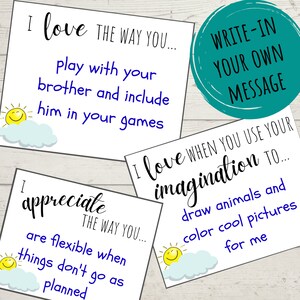 I love THE WAY YOU...
play with your
brother and include
him in your games
WRITE-IN
YOUR OWN
MESSAGE
I love WHEN YOU USE YOUR
imagination TO...
draw animals and
color cool pictures
for me
I
appreciate
THE WAY YOU...
are flexible when
things don't go as
planned